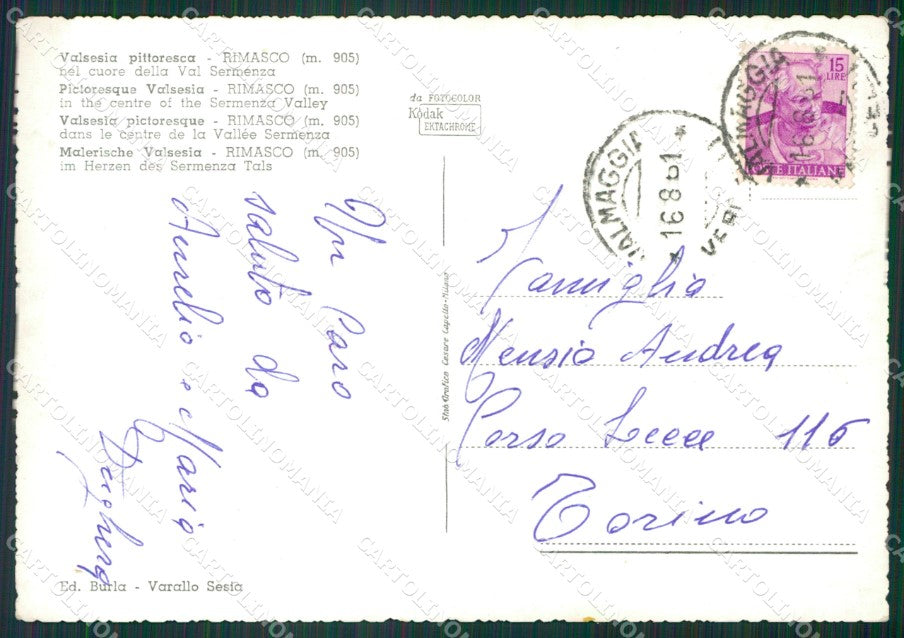 Valsesia pittoresca - RIMASCO (m. 905)
nel cuore della Val Sermenza
Picturesque Valsesia - RIMASCO (m. 905)
in the centre of the Sermenza Valley
Valsesia pictoresque - RIMASCO (m. 905)
dans le centre de la Vallée Sermenza
Malerische Valsesia - RIMASCO (m. 905)
im Herzen des Sermenza Tals
da FOTOCOLOR
Kodak
EKTACHROME
Un Caro
saluto da
Aurelio e Maria
Ed. Burla - Varallo Sesia
Stab. Grafico Cesare Capello - Milano
VALMAGGIA
16.8.61
VER
15
LIRE
ITALIANE
VALMAGGIA
16.8.61
Famiglia
Andrea
Corso Lecce 116
Torino
CARTOLINOMANIA